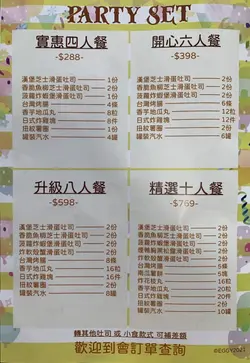 PARTY SET
實惠四人餐
-$288-
漢堡芝士滑蛋吐司 1份
香脆魚柳芝士滑蛋吐司 1份
菠蘿炸蝦餅滑蛋吐司 1份
台灣烤腸 4條
香芋地瓜丸 8粒
日式炸雞塊 8件
扭紋薯圈 1份
罐裝汽水 4罐
開心六人餐
-$398-
漢堡芝士滑蛋吐司 2份
香脆魚柳芝士滑蛋吐司 2份
菠蘿炸蝦餅滑蛋吐司 2份
台灣烤腸 6條
香芋地瓜丸 12粒
日式炸雞塊 12件
扭紋薯圈 1份
罐裝汽水 6罐
升級八人餐
-$598-
漢堡芝士滑蛋吐司 2份
香脆魚柳芝士滑蛋吐司 2份
菠蘿炸蝦餅滑蛋吐司 2份
台灣烤腸 8條
香芋地瓜丸 16粒
日式炸雞塊 16件
扭紋薯圈 1份
罐裝汽水 8罐
精選十人餐
-$769-
漢堡芝士滑蛋吐司 2份
香脆魚柳芝士滑蛋吐司 2份
菠蘿炸蝦餅滑蛋吐司 2份
台灣烤腸 10條
香芋地瓜丸 20粒
日式炸雞塊 20件
扭紋薯圈 2份
罐裝汽水 10罐
轉其他吐司 或 小食款式 可補差額
歡迎到會訂單查詢